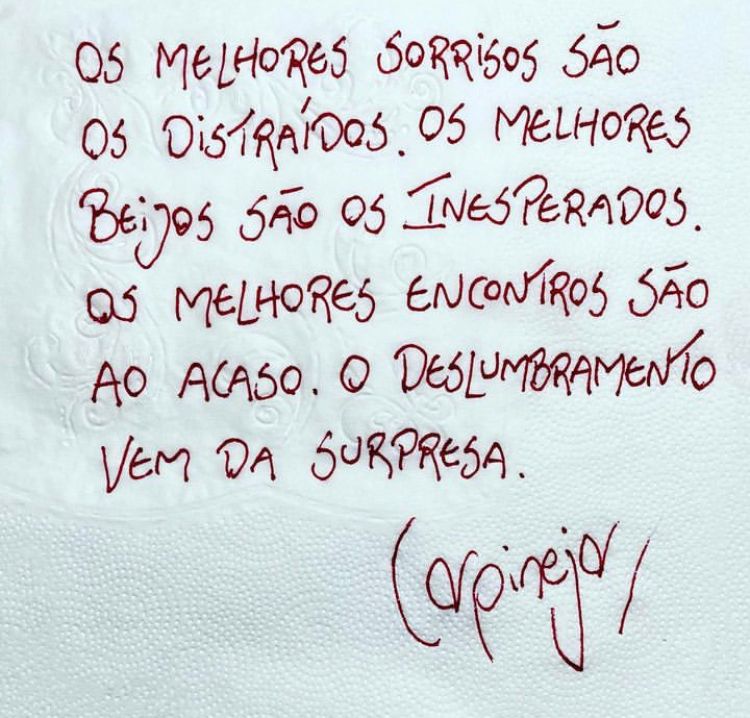 OS MELHORES SORRISOS SÃO
OS DISTRAÍDOS. OS MELHORES
BEIJOS SÃO OS INESPERADOS.
OS MELHORES ENCONTROS SÃO
AO ACASO. O DESLUMBRAMENTO
VEM DA SURPRESA.
Carpinejar